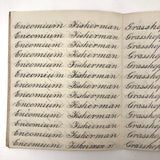 Encomium Fisherman Grassh
Encomium Fisherman Grassh
Encomium Fisherman Grassh
Encomium Fisherman Grassh
Encomium Fisherman Grassh
Encomium Fisherman Grassh
Encomium Fisherman Grassh
Encomium Fisherman Grassh
Encomium Fisherman Grassh
Encomium Fisherman Grassh
Encomium Fisherman Grassh